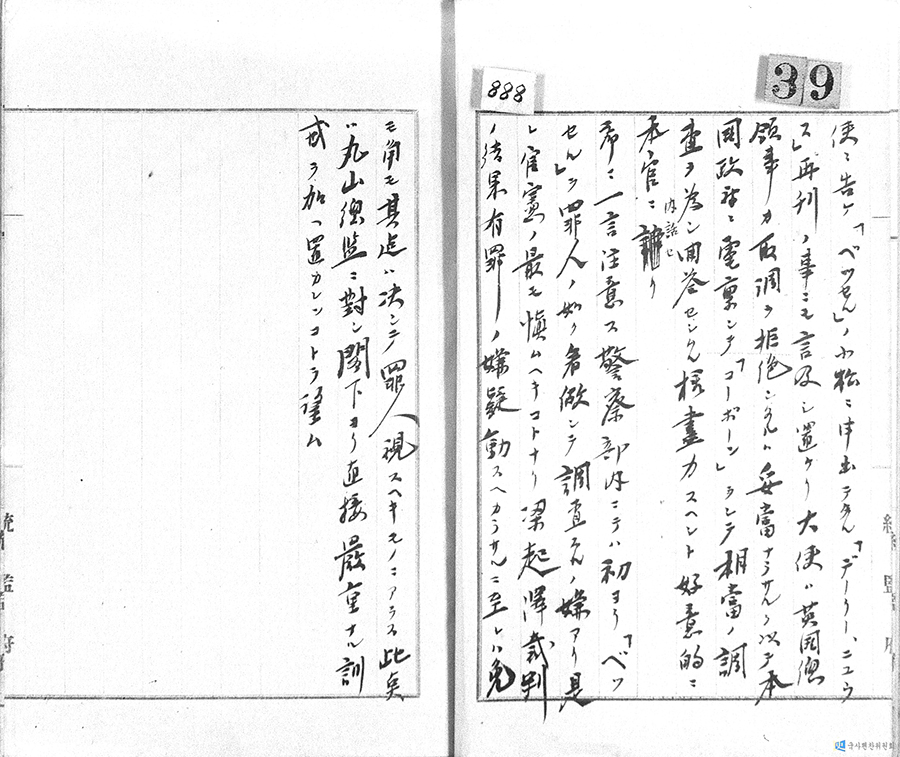 39
888
使ニ告ケ「ベッセル」ノ小松ニ申出テタル「デーリー、ニュウ
ス」再刊ノ事ニモ言及シ置ケリ大使ハ英国総
領事カ取調ヲ拒絶シタルハ妥當ナラサルヲ以テ本
国政府ニ電稟シテ「コーボーン」ヲシテ相當ノ調
査ヲ為シ回答センムル様盡力スヘシト好意的ニ
本官ニ内話セリ
希ニ一言注意ス警察部内ニテハ初ヨリ「ベッ
セル」ヲ罪人ノ如ク看做シテ調査スルノ嫌アリ是
レ官憲ノ最モ慎ムヘキコトナリ梁起澤裁判
ノ結果有罪ノ嫌疑動スヘカラサルニ至レハ兎
モ角モ其迄ハ决シテ罪人視スヘキモノニアラス此点
ハ丸山総監ニ對シ閣下ヨリ直接嚴重ナル訓
戒ヲ加ヘ置カレンコトヲ望ム
統監府
統監府
국사편찬위원회